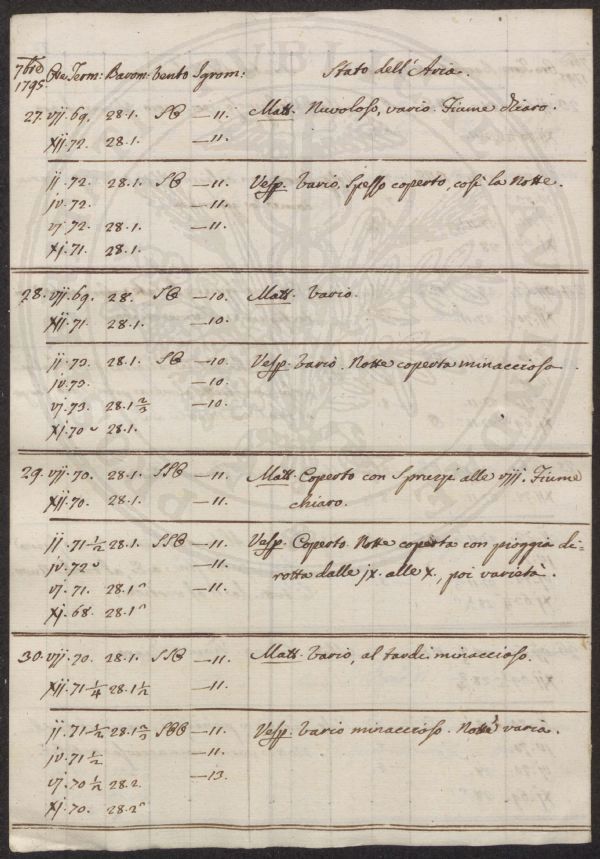 7bre Ore. Term: Barom: Vento Igrom: Stato dell'Aria.
1795.
27. vij. 69. 28.1. SE —11. Matt. Nuvoloso, vario. Fiume chiaro.
xij. 72. 28.1. —11.
ij. 72. 28.1. SE —11. Vesp. Vario, spesso coperto, così la Notte.
iv. 72. —11.
vj. 72. 28.1. —11.
xj. 71. 28.1.
28. vij. 69. 28. SE —10. Matt. Vario.
xij. 71. 28.1. —10.
ij. 73. 28.1. SE —10. Vesp. Vario. Notte coperta minacciosa.
iv. 73. —10.
vj. 73. 28.1 2/3 —10.
xj. 70 28.1.
29. vij. 70. 28.1. SSE —11. Matt. Coperto con Spruzzi alle viij. Fiume
xij. 70. 28.1. —11. chiaro.
ij. 71 1/2 28.1. SSE —11. Vesp. Coperto. Notte coperta con pioggia di=
iv. 72 —11. rotta dalle ix. alle x., poi varietà.
vj. 71. 28.1 —11.
xj. 68. 28.1
30. vij. 70. 28.1. SSE —11. Matt. Vario, al tardi minaccioso.
xij. 71 1/4 28.1 1/2 —11.
ij. 71 1/2 28.1 2/3 SEE —11. Vesp. Vario minaccioso. Notte varia.
iv. 71 1/2 —11.
vj. 70 1/2 28.2. —13.
xj. 70. 28.2